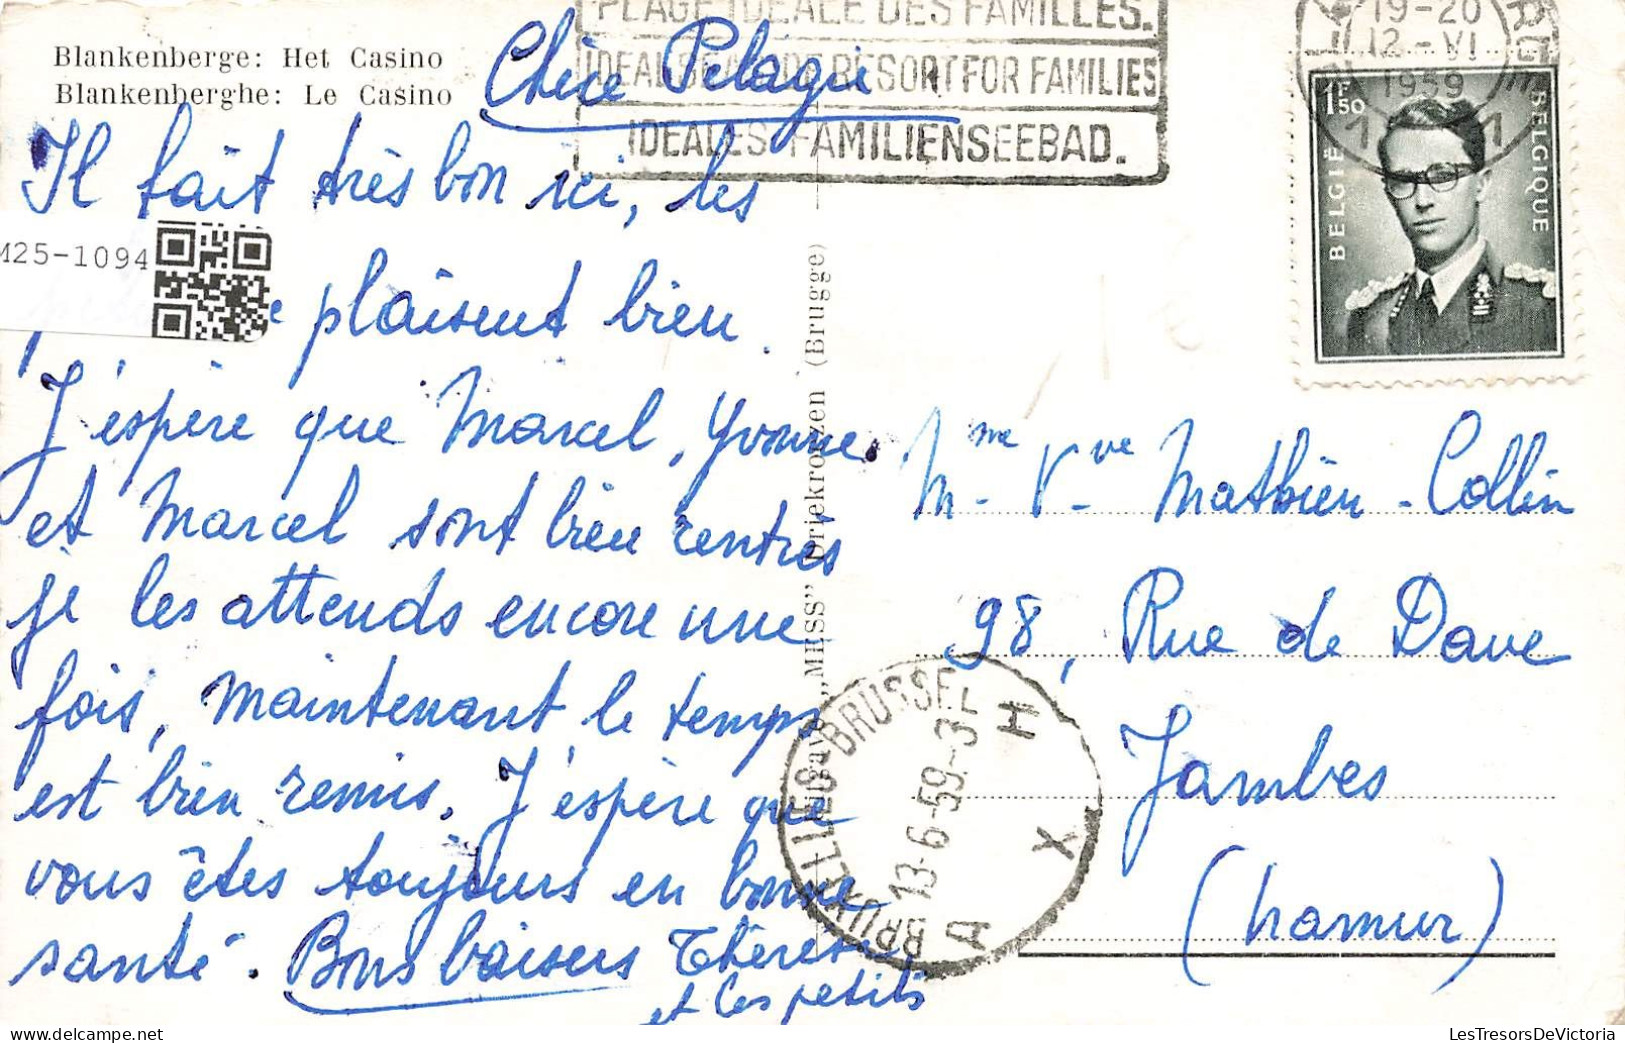 Blankenberge: Het Casino
Blankenberghe: Le Casino
PLAGE IDEALE DES FAMILLES.
RESORT FOR FAMILIES
IDEALES FAMILIENSEEBAD.
19-20
12-VI
1959
1 1
1F50
BELGIË
BELGIQUE
Chère Pelagie
Il fait très bon ici, les
M25-1094
plaisent bien.
J'espère que Marcel, Yvonne
et Marcel sont bien rentrés
je les attends encore une
fois, maintenant le temps
est bien remis. J'espère que
vous êtes toujours en bonne
santé. Bons baisers Thérèse
et les petits
Uitgave „MISS" Driekroezen (Brugge)
Mme Vve Mathieu-Collin
98, Rue de Dave
Jambes
(Namur)
BRUXELLES-BRUSSEL
13-6-59-3
H
X
A
LesTresorsDeVictoria.com